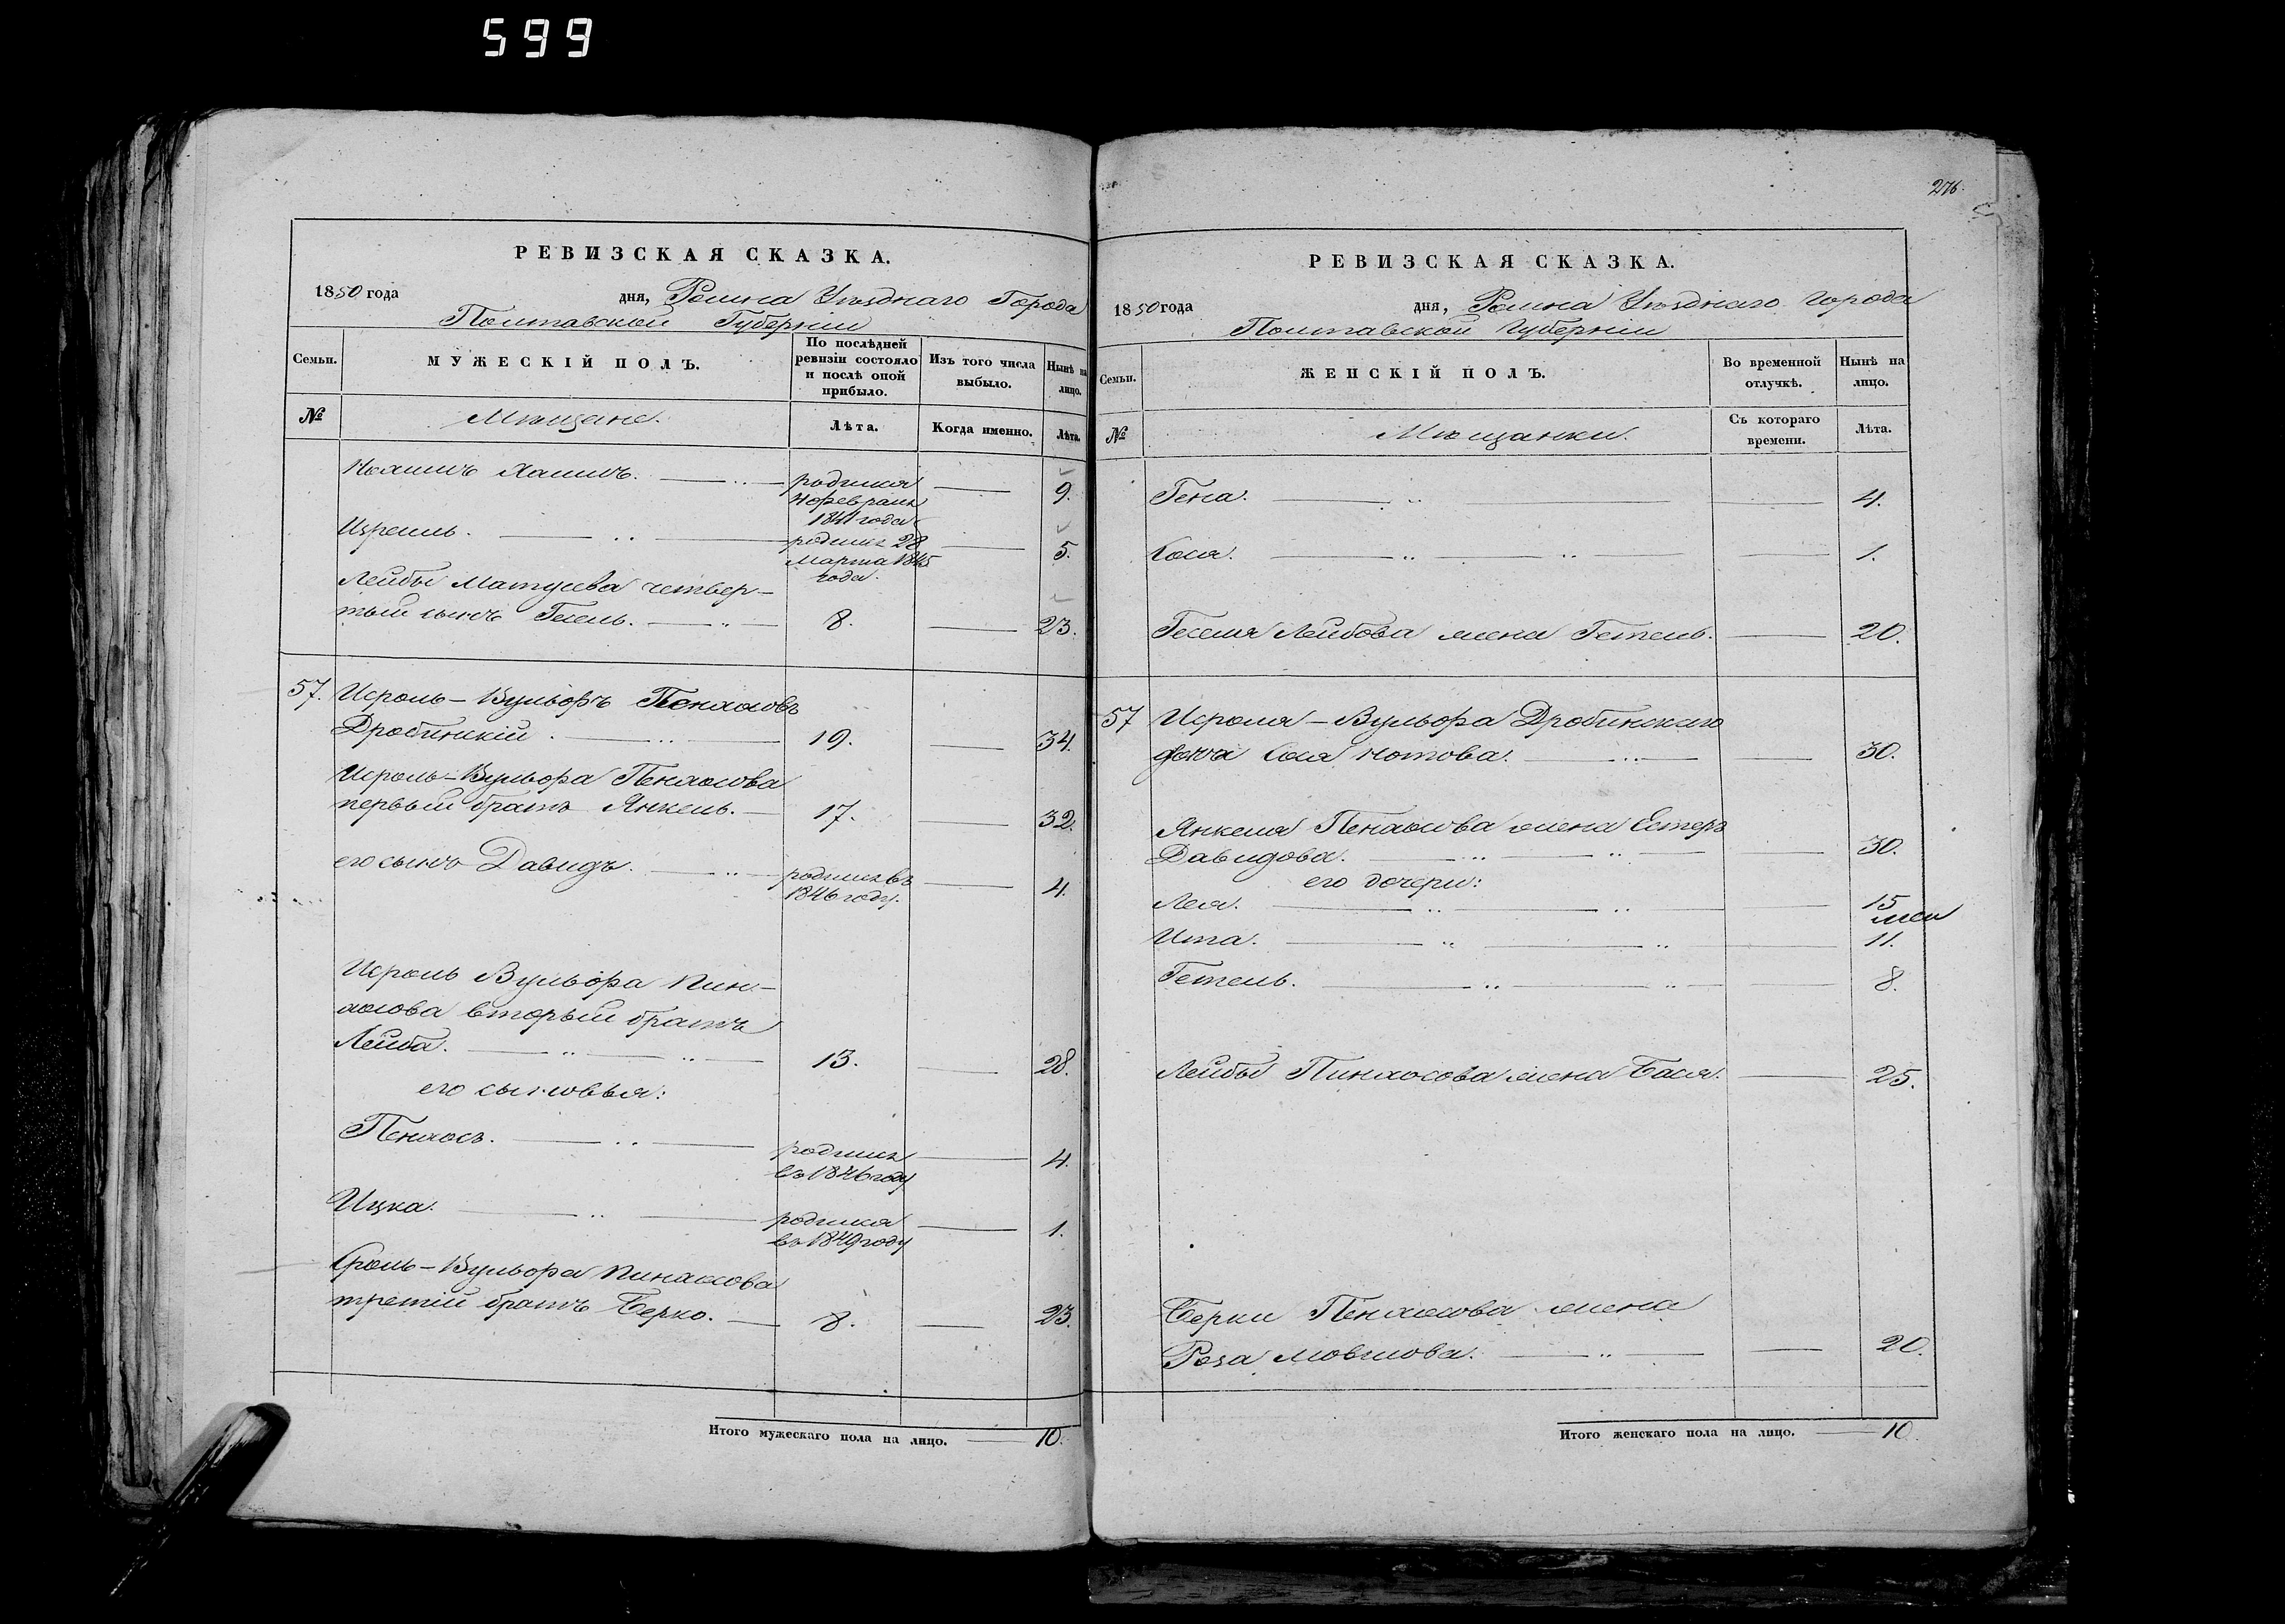 599
276
РЕВИЗСКАЯ СКАЗКА.
1850 года дня, Ромна Уѣзднаго Города
Полтавской Губерніи
Семьи.
МУЖЕСКІЙ ПОЛЪ.
По послѣдней ревизіи состояло и послѣ оной прибыло.
Изъ того числа выбыло.
Нынѣ на лицо.
№
Мѣщане.
Лѣта.
Когда именно.
Лѣта.
Хаимъ. родился 9.
февраля
1841 года
Израиль. родился 28 5.
марта 1845
года.
Лейбы Матусова четвер-
тый сынъ 8. 23.
57. Исроль-Вульфъ Пенхасовъ
Дробинскій. 19. 34.
Исроль-Вульфа Пенхасова
первый братъ Янкель. 17. 32.
его сынъ Давидъ. родился въ 4.
1846 году.
Исроль Вульфа Пин-
хасова вторый братъ
Лейба. 13. 28.
его сыновья:
Пенхасъ. родился 4.
въ 1846 году
Ицка. родился 1.
въ 1849 году
Сроль-Вульфа Пинхасова
третій братъ Берко. 8. 23.
Итого мужескаго пола на лицо. 10.
РЕВИЗСКАЯ СКАЗКА.
1850 года дня, Ромна Уѣзднаго Города
Полтавской Губерніи
Семьи.
ЖЕНСКІЙ ПОЛЪ.
Во временной отлучкѣ.
Нынѣ на лицо.
№
Мѣщанки.
Съ котораго времени.
Лѣта.
Гена. 4.
Хася. 1.
Лейбова жена Гетель. 20.
57 Исроля-Вульфа Дробинскаго
Нотова. 30.
Янкеля Пенхасова жена Естеръ
Давидова. 30.
его дочери:
Лея. 15
Ита. 11.
Гетель. 8.
Лейбы Пинхасова жена Бася. 25.
Берки Пенхасова жена
Роза Мовшова. 20.
Итого женскаго пола на лицо. 10.